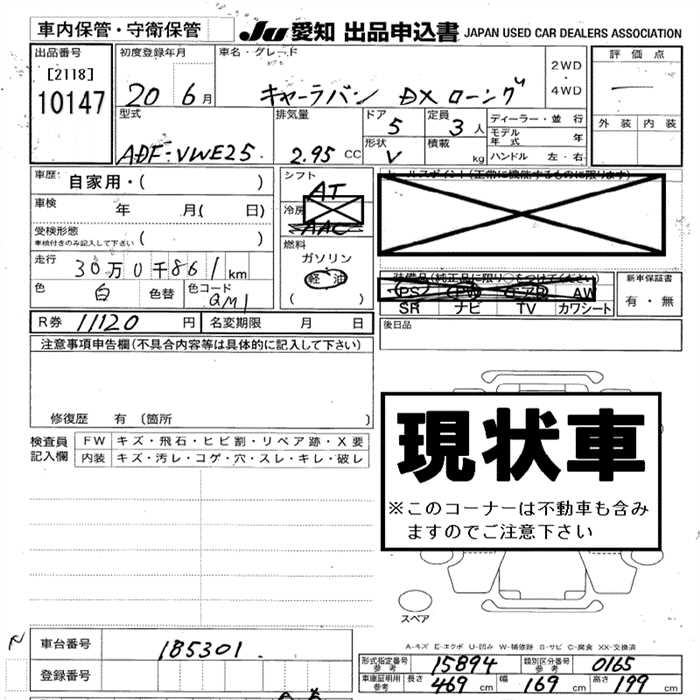 車内保管・守衛保管
JU 愛知 出品申込書 JAPAN USED CAR DEALERS ASSOCIATION
出品番号
[2118]
10147
初度登録年月
20 6月
車名・グレード
キャーラバン DX ローング
2WD
・
4WD
評価点
外装 内装
型式
ADF-VWE25
排気量
2.95 CC
ドア
5
形状
V
定員
3人
積載
kg
ディーラー・並行
モデル年式 年
ハンドル 左・右
車歴: 自家用・( )
車検 年 月( 日)
受検形態
車検付きのみ記入して下さい ( )
走行 30万0千861km
色 白 色替 色コード QM1
シフト
AT
冷房
AAC
燃料
ガソリン
軽油
( )
セールスポイント(正常に機能するものに限ります)
装備品(純正品に限り○をつけて下さい)
PS PW エアB AW
SR ナビ TV カワシート
新車保証書
有・無
R券 11120 円 名変期限 月 日
後日品
注意事項申告欄(不具合内容等は具体的に記入して下さい)
修復歴 有(箇所 )
検査員記入欄
FW キズ・飛石・ヒビ割・リペア跡・X要
内装 キズ・汚レ・コゲ・穴・スレ・キレ・破レ
現状車
※このコーナーは不動車も含み
ますのでご注意下さい
スペア
A-キズ E-エクボ U-凹み W-補修跡 S-サビ C-腐食 XX-交換済
車台番号 185301
登録番号
形式指定番号 参考 15894 類別区分番号 参考 0165
車庫証明用 参考 長さ 469 cm 幅 169 cm 高さ 199 cm